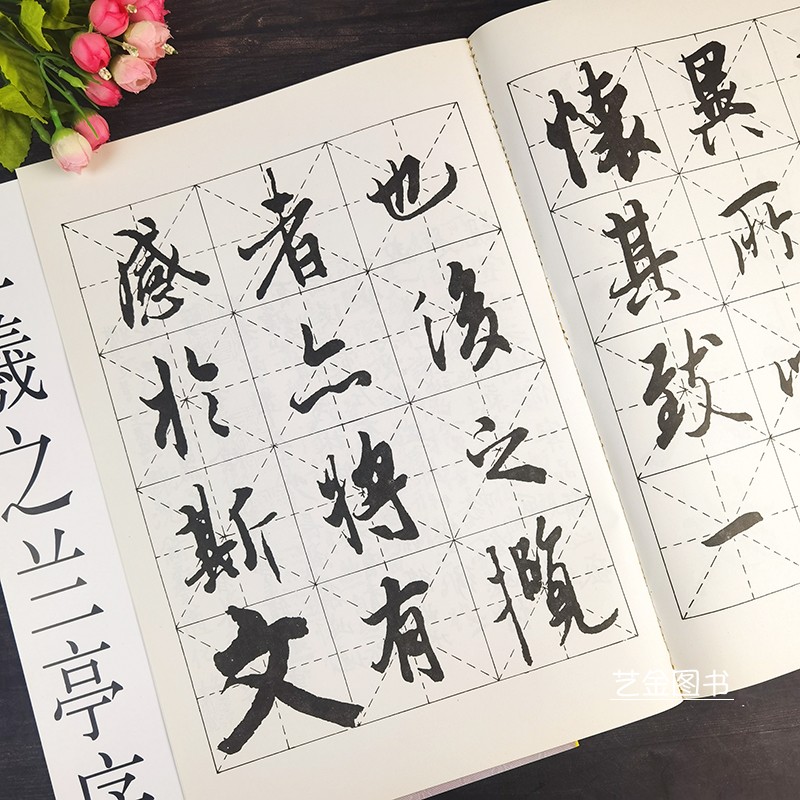 異所以
懷其致一
也後之攬
者亦將有
感於斯文
羲之兰亭序
艺金图书